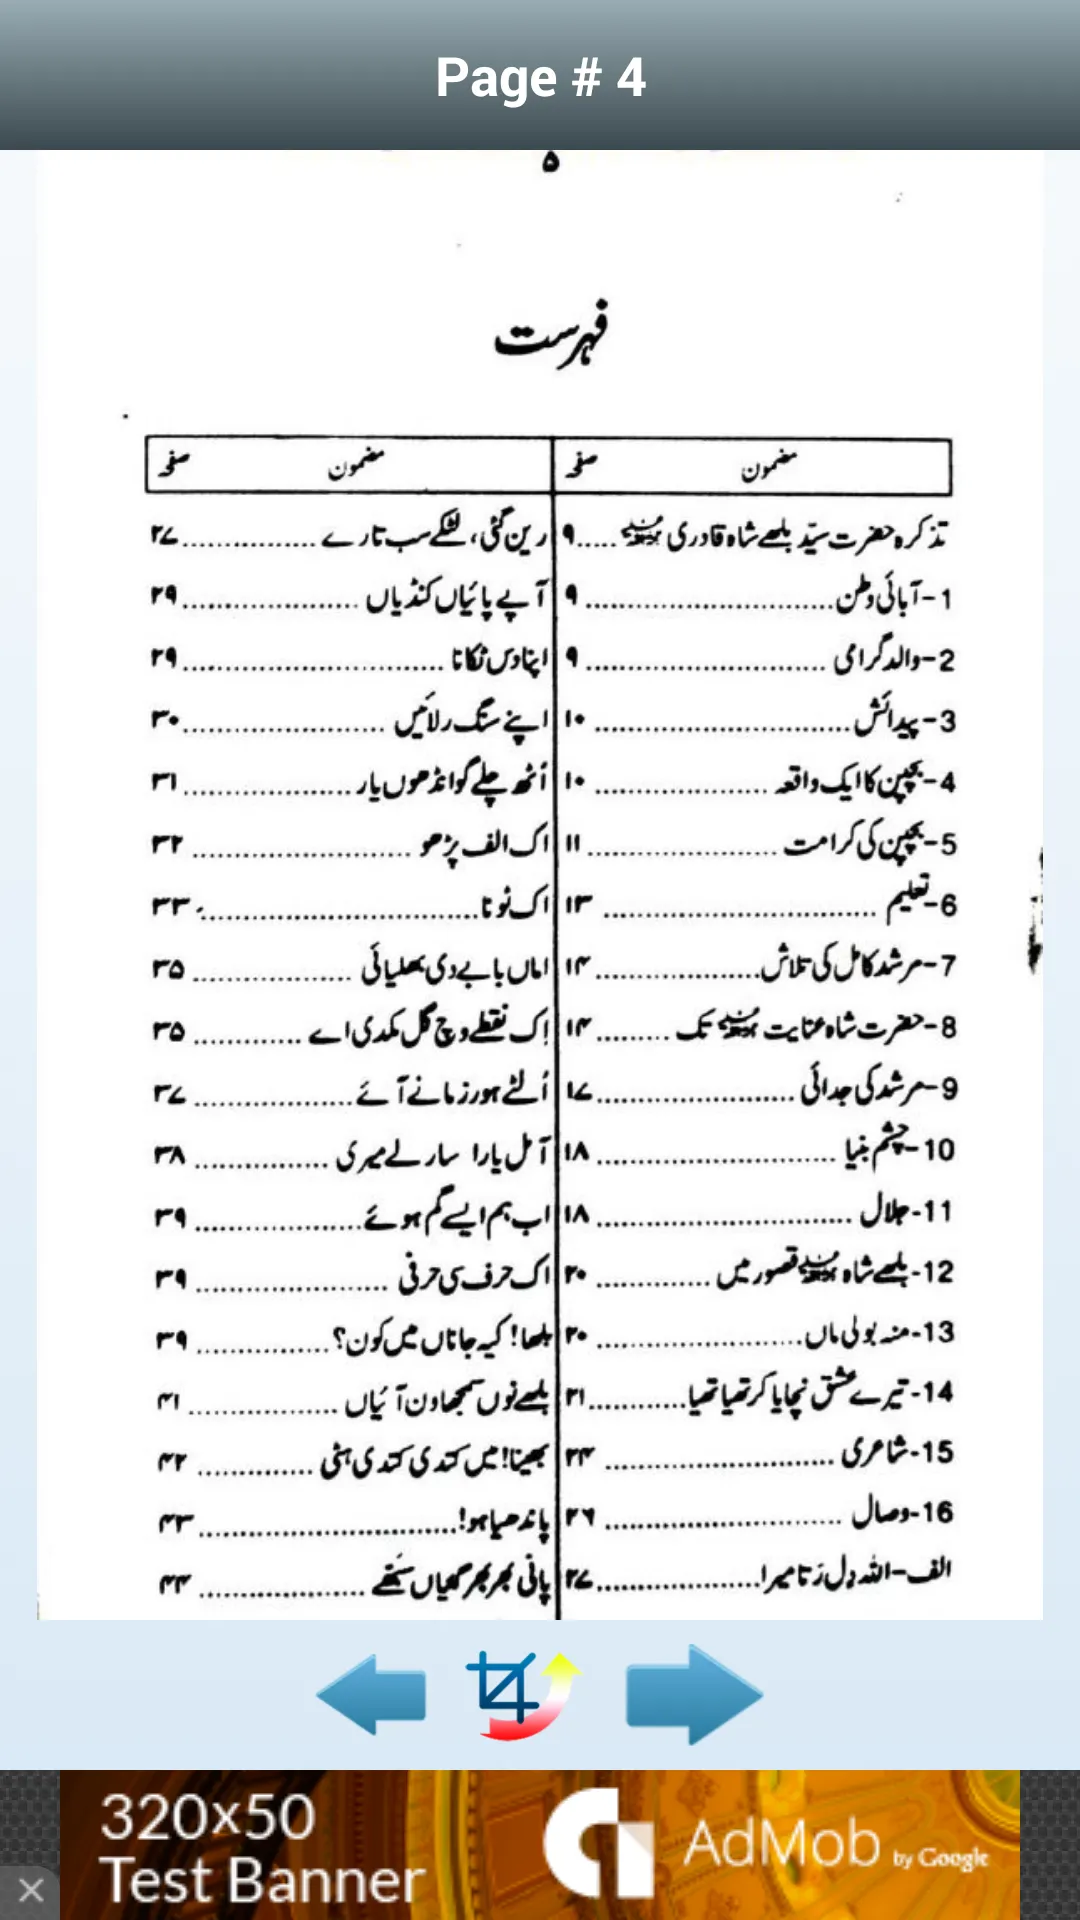 Page # 4
۵
فہرست
مضمون صفحہ
تذکرہ حضرت سیّد بلھے شاہ قادری ..... ۹
1-آبائی وطن ............................ ۹
2-والد گرامی ........................... ۹
3-پیدائش ............................. ۱۰
4-بچپن کا ایک واقعہ .................... ۱۰
5-بچپن کی کرامت ...................... ۱۱
6-تعلیم ............................... ۱۳
7-مرشد کامل کی تلاش ................... ۱۴
8-حضرت شاہ عنایت تک ......... ۱۴
9-مرشد کی جدائی ....................... ۱۷
10-چشم بینا ........................... ۱۸
11-جلال ............................. ۱۸
12-بلھے شاہ قصور میں ............. ۲۰
13-منہ بولی ماں ........................ ۲۰
14-تیرے عشق نچایا کر تھیا تھیا ............ ۲۱
15-شاعری .......................... ۲۴
16-وصال ........................... ۲۶
الف-اللہ دِل رَتا میرا ................... ۲۷
مضمون صفحہ
رین گئی، لٹکے سب تارے ............... ۲۷
آپے پائیاں کنڈیاں .................... ۲۹
اپنا دس ٹکانا ............................. ۲۹
اپنے سنگ رلائیں ....................... ۳۰
اُٹھ چلے گوانڈھوں یار ................... ۳۱
اک الف پڑھو ......................... ۳۲
اک ٹونا ............................... ۳۳
اماں بابے دی بھلیائی .................. ۳۵
اِک نقطے وچ گل مکدی اے ............ ۳۵
اُلٹے ہور زمانے آئے .................. ۳۷
آمل یارا سار لے میری ............... ۳۸
اب ہم ایسے گم ہوئے ................... ۳۹
اک حرف سی حرفی ...................... ۳۹
بلھا! کیہ جاناں میں کون؟ ............... ۳۹
بلھے نوں سمجھاون آئیاں ................. ۴۱
بھینا! میں کتدی کتدی ہٹی ............. ۴۲
پاندھیا ہو! ............................. ۴۳
پانی بھر بھر گھیاں سَبھّے ................... ۴۴
320x50
Test Banner
AdMob by Google